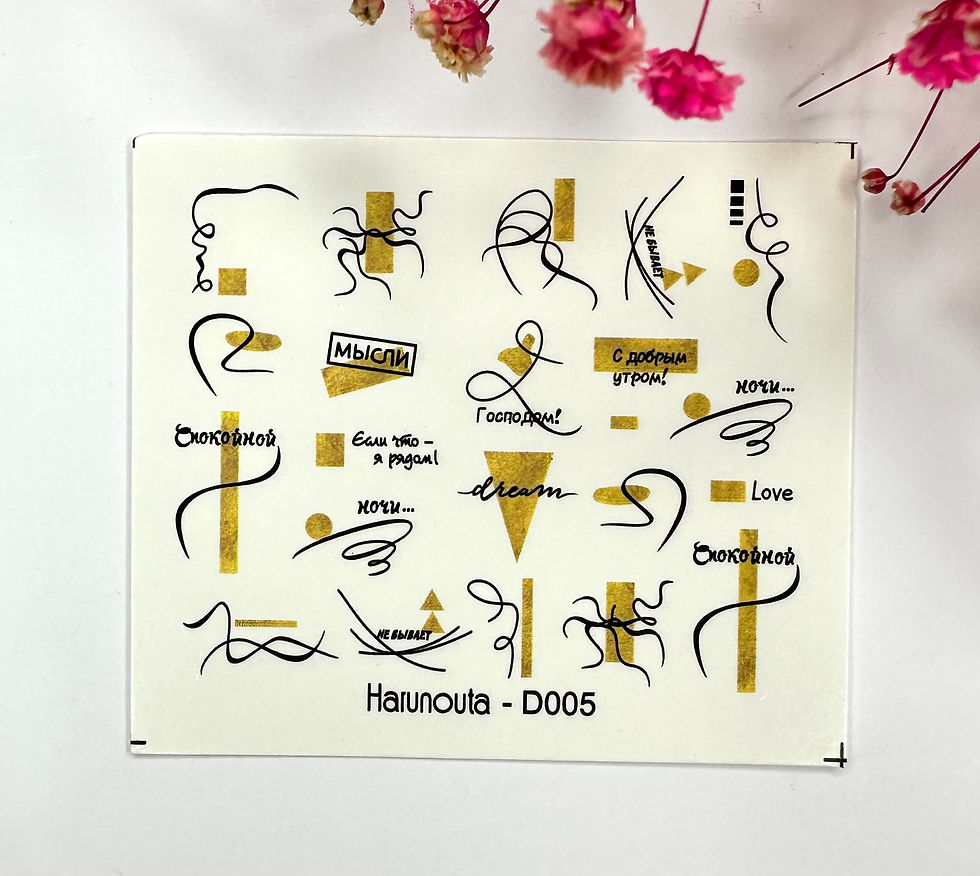 НЕ БЫВАЕТ
МЫСЛИ
С добрым
утром!
Господом!
ночи...
Спокойной
Если что –
я рядом!
dream
Love
ночи...
Спокойной
НЕ БЫВАЕТ
Harunouta - D005